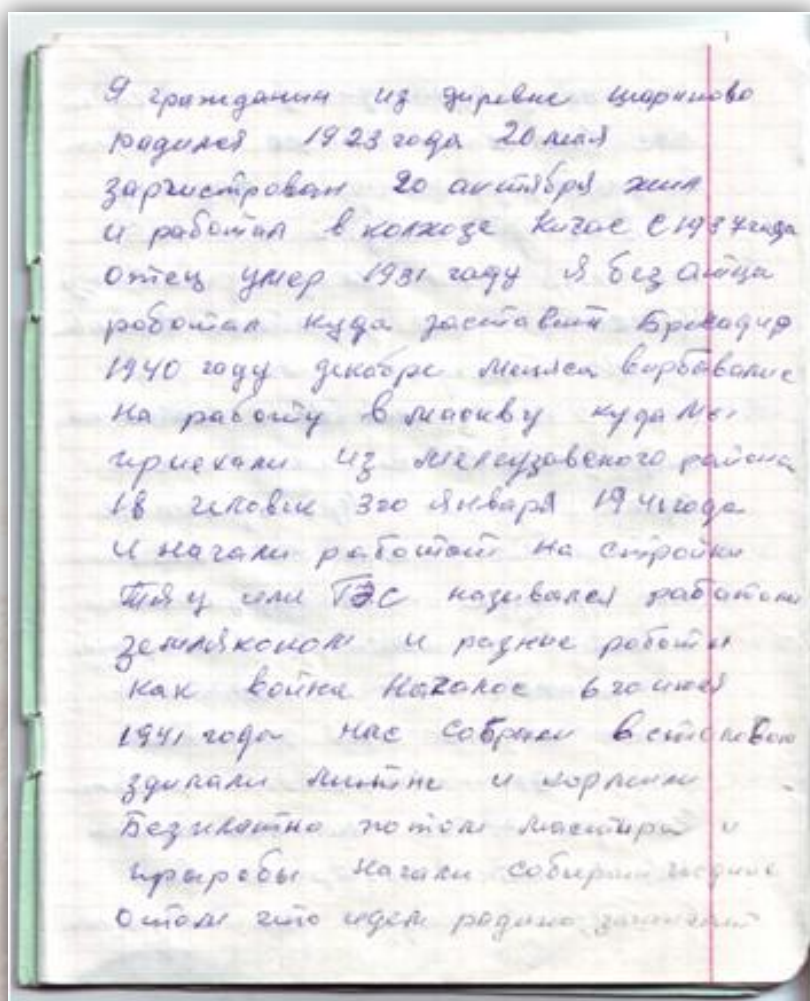 Я гражданин из диревне шарипово
радился 1923 года 20 мая
заргистрован 20 октября жил
и работал в колхозе Кызас с 1937 года
отец умер 1931 году Я без отца
работал куда заставит Бригадир
1940 году декабре месяса вирбавалис
на работу в маскву куда мы
приехали из Мелеузавского района
18 человек 3го января 1941 года
и начали работат на стройки
или ГЭС назывался работали
землякопом и разние работы
как война началос
1941 года нас собрали в столовою
здилали митинг и кормили
Безплатно потом мастира и
прарабы начали собират
отом что идем радину